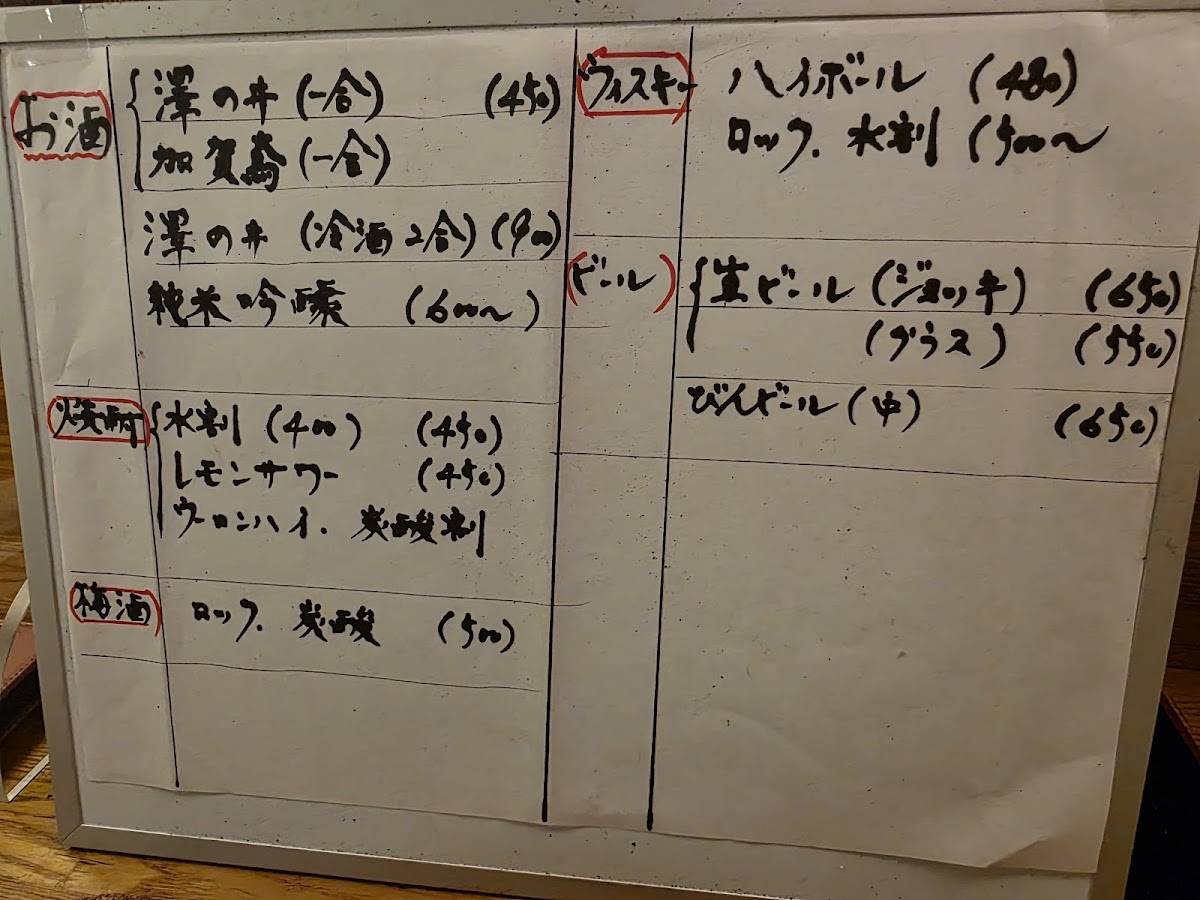 お酒
澤の井 (一合) (450)
加賀鳶 (一合)
澤の井 (冷酒2合) (900)
純米吟醸 (600〜)
焼酎
水割 (400) (450)
レモンサワー (450)
ウーロンハイ. 炭酸割
梅酒
ロック. 炭酸 (500)
ウィスキー
ハイボール (480)
ロック. 水割 (500〜
(ビール)
生ビール (ジョッキ) (650)
(グラス) (550)
びんビール (中) (650)